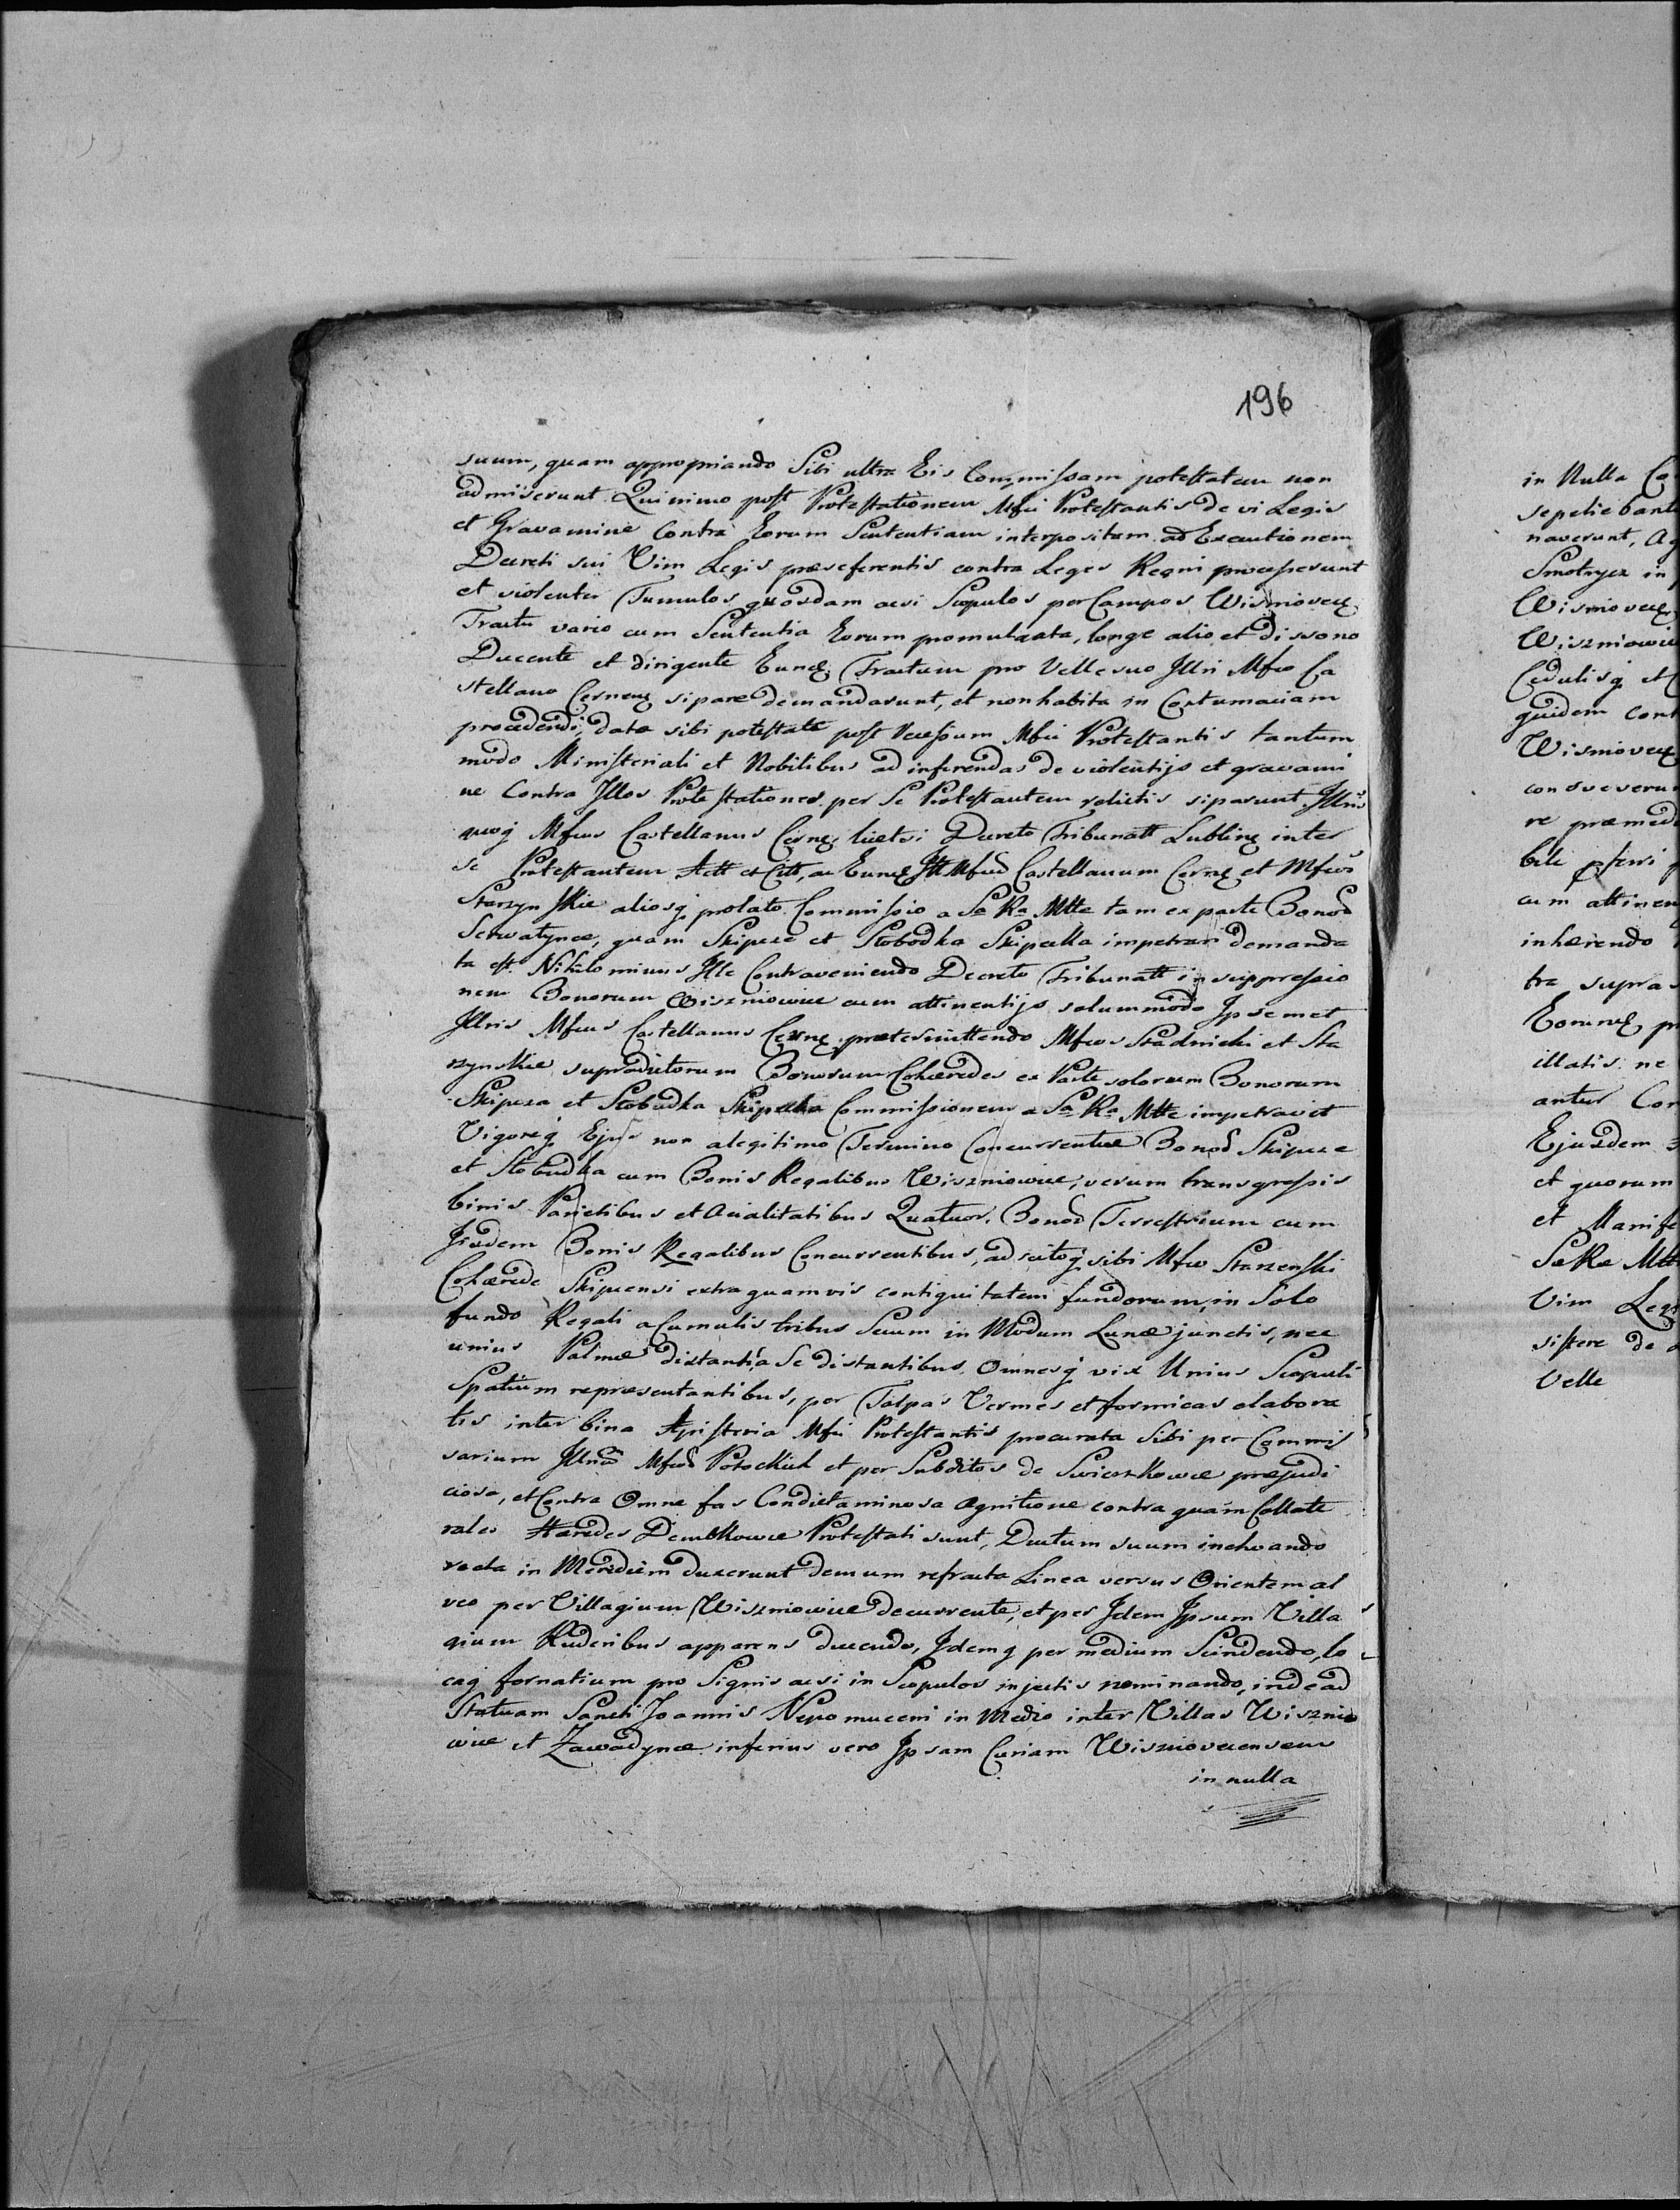 196
suum, quam appropriando Sibi ultra Eis Commissam potestatem non
admiserunt. Quinimo post Protestationem Mfci Protestantis de vi Legis
et Gravamine Contra Eorum Sententiam interpositam ad Executionem
Decreti sui Vim Legis praeseferentis contra Leges Regni processerunt
et violenter Tumulos quosdam acsi Scopulos per Campos Wisniovecen
Tractu vario cum Sententia Eorum promulgata, longe alio et dissono
Ducente et dirigente Eund Tractum pro Velle suo Illri Mfco Ca
stellano Cernen sipare demandarunt, et non habita in Contumaciam
procedendi, data sibi potestate post recessum Mfci Protestantis tantum
modo Ministeriali et Nobilibus ad inferendas de violentijs et gravami
ne Contra Illos Protestationes per Se Protestantem relictis siparunt. Illris
quoq Mfcus Castellanus Cerne, licetsi Decreto Tribunali Lublin inter
se Protestantem et Citt, ac Eund Mfcum Castellanum Cerne et Mfcos
Starzynskie aliosq prolato Commissio a Sa Ra Mtte tam ex parte Bonor
Serwatynce, quam Skipcze et Slobodka Skipecka impetrari demanda
ta est. Nihilominus Ille Contraveniendo Decreto Tribunali in suppressio
nem Bonorum Wiszniowice cum attinentijs solummodo Ipsemet
Illris Mfcus Castellanus Cerne praetermittendo Mfcos Stadnicki et Sta
rzynskie supradictorum Bonorum Cohaeredes ex Parte solorum Bonorum
Skipcza et Slobudka Skipecka Commissionem a Sa Ra Mtte impetravit
Vigoreq Ejus non a legitimo Termino Concurrentiae Bonor Skipcze
et Slobudka cum Bonis Regalibus Wiszniowice, verum transgressis
binis Parietibus et Acialitatibus Quatuor, Bonor Terrestrium cum
Iisdem Bonis Regalibus Concurrentibus, adscitoq sibi Mfco Starzenski
Cohaerede Skipcensi extra quamvis contiguitatem fundorum, in Solo
fundo Regali a Cumulis tribus Secum in Modum Lunae junctis, nec
unius Palmae distantia Se distantibus Omnesq vix Unius Scopuli
Spatium repraesentantibus, per Talpas Vermes et formicas elabora
tis inter bina Aristeria Mfci Protestantis procurata Sibi per Commis
sarium Mfcor Potockich et per Subditos de Swierzkowce praejudi
ciosa, et Contra Omne fas Condictaminosa Agnitione contra quam Collate
rales Haeredes Dembkowce Protestati sunt, Ductum suum inchoando
recta in Meridiem duxerunt demum refracta Linea versus Orientem al
veo per Villagium Wiszniowice decurrente, et per Idem Ipsum Villa
gium Ruderibus apparens ducendo, Idemq per medium Scindendo, lo
caq fornatium pro Signis acsi in Scopulos injectis nominando, inde ad
Statuam Sancti Joannis Nepomuceni in Medio inter Villas Wisznio
wice et Zawadynce inferius vero Ipsam Curiam Wisniovecensem
in nulla
in Nulla Co
sepeliebant
naverunt, Ag
Smotrycz in
Wisniovecen
Wiszniowic
Cedulisq et
quidem cont
Wisniovecen
consveverun
re praemed
bili
cum attinen
inhaerendo
tra supras
illatis ne
antur Cor
Ejusdem
et quorum
et Manife
Sa Ra Mtt
Vim Legis
sistere de
Velle